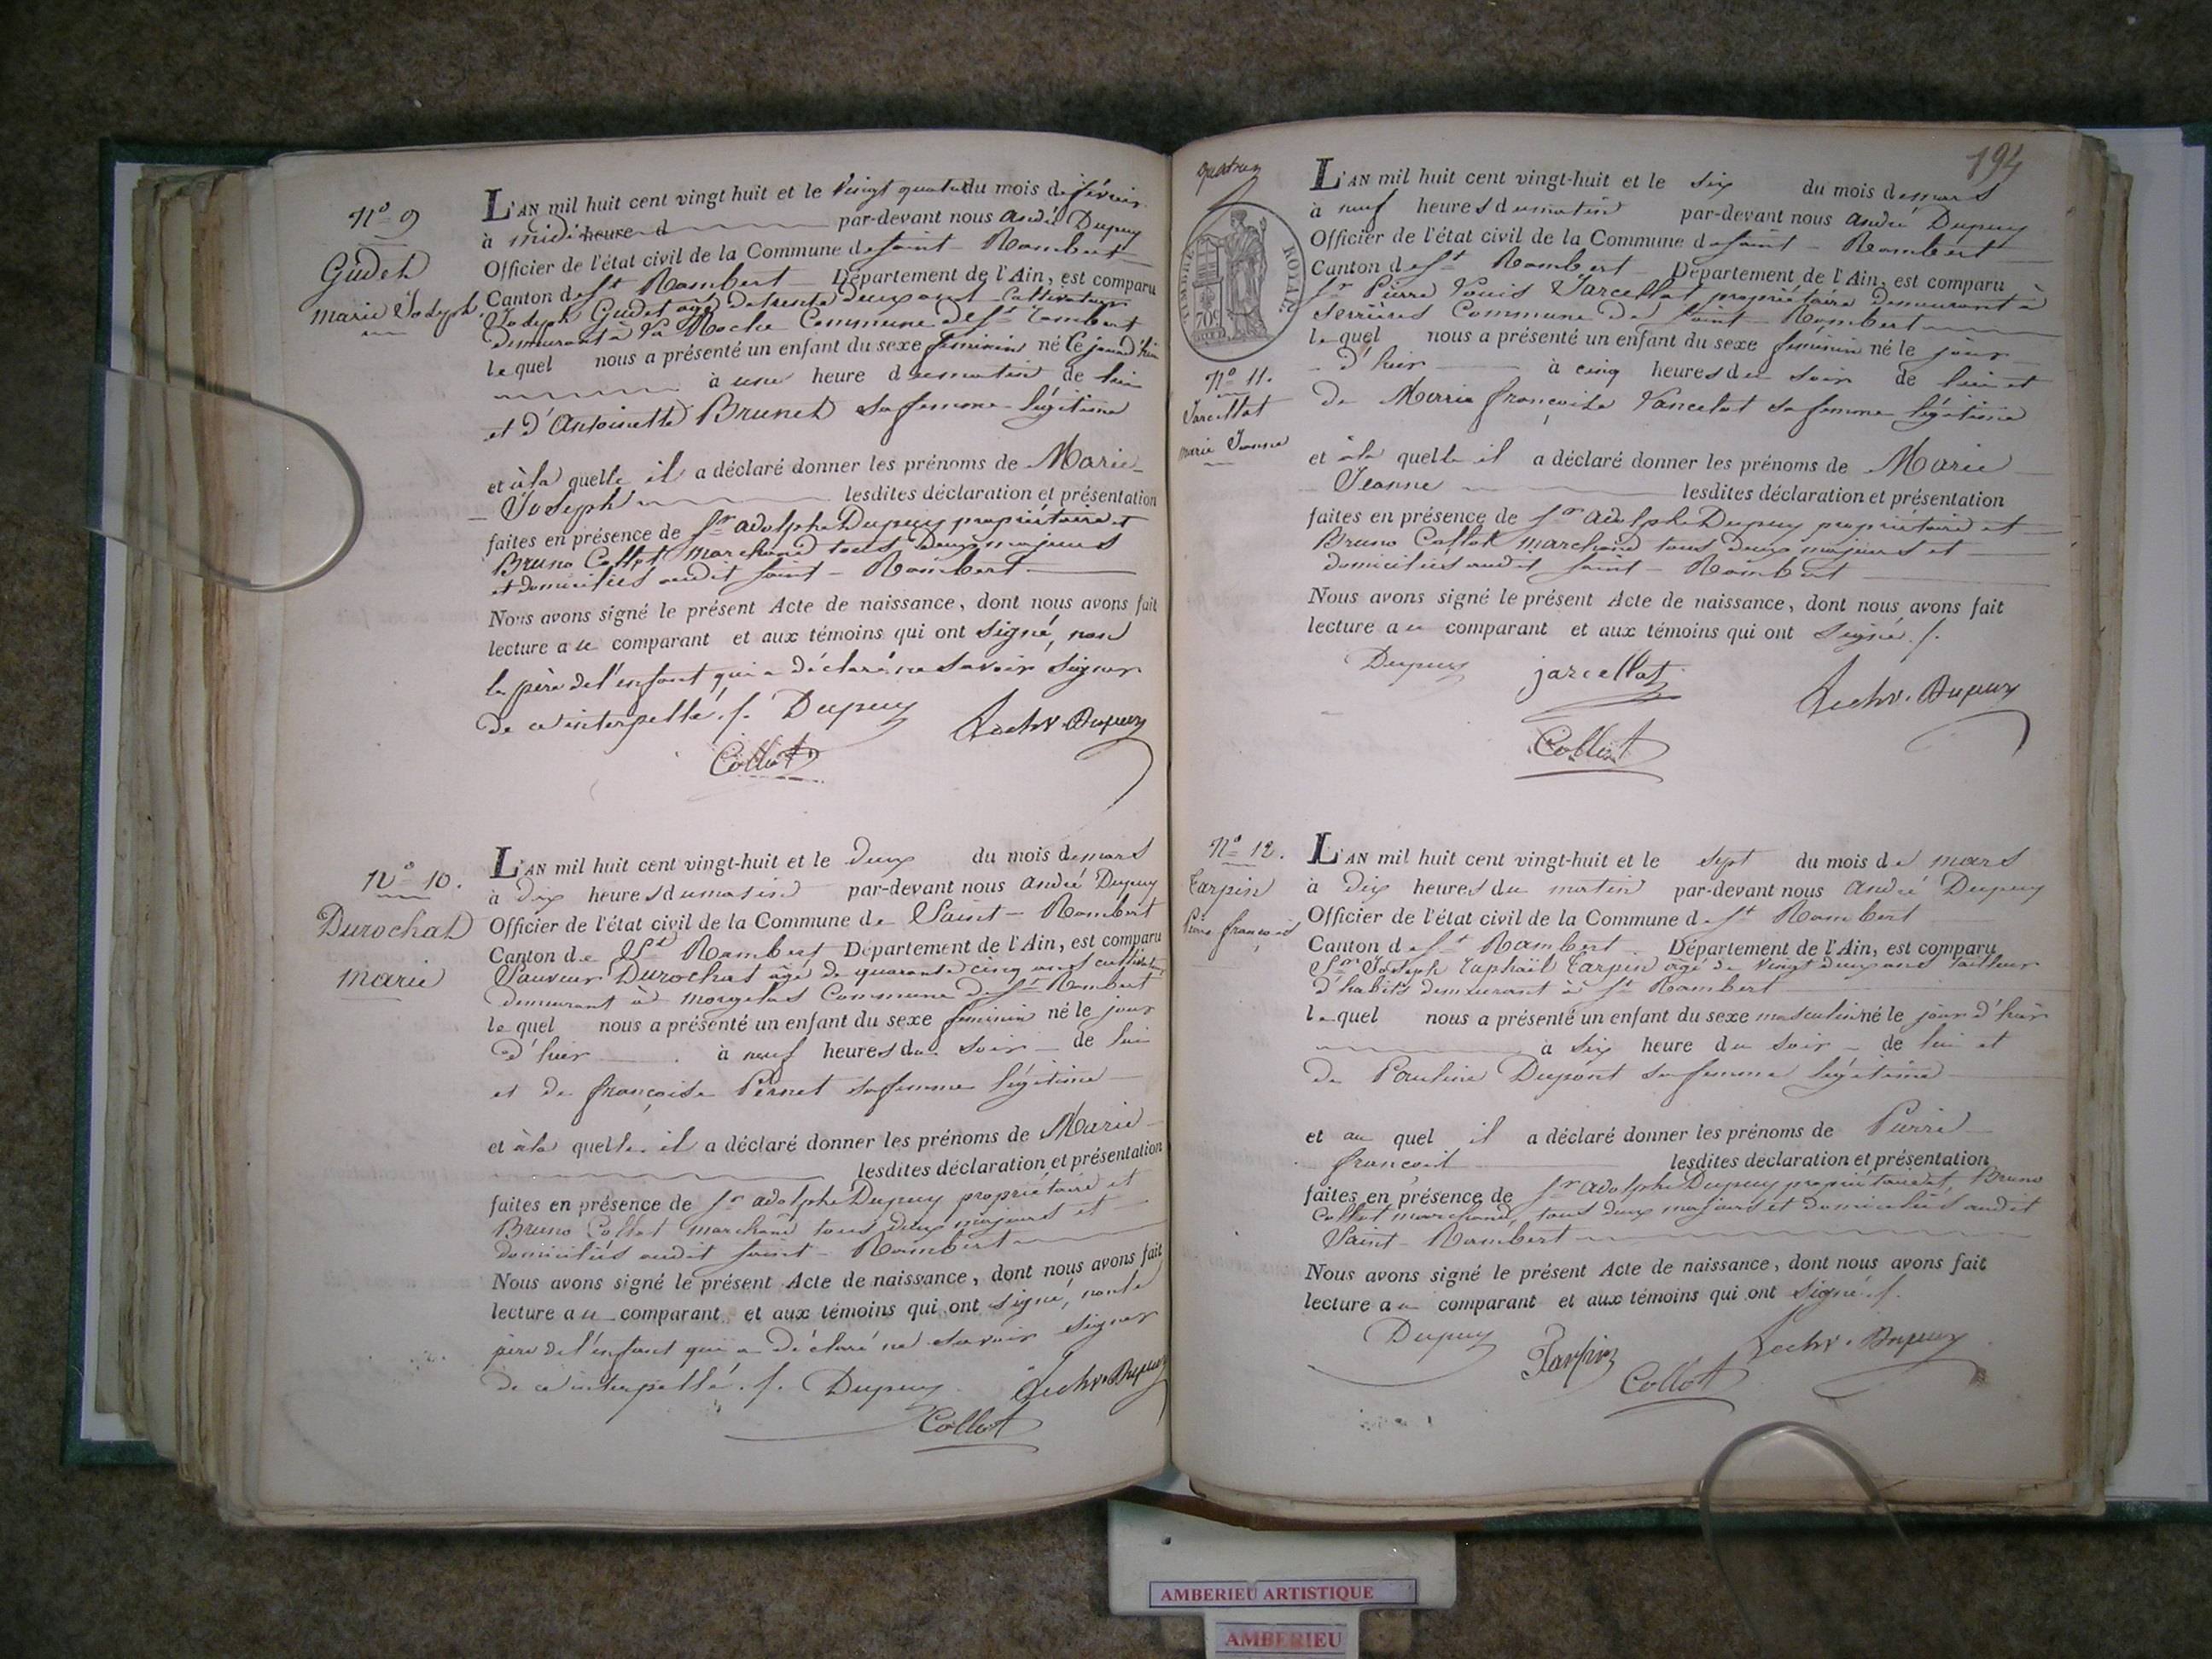 N° 9
Gudet
marie Joseph.
L'AN mil huit cent vingt huit et le Vingt quatre du mois de février
à midi heure d par-devant nous andré Dupuy
Officier de l'état civil de la Commune de saint - Rambert
Canton de St Rambert Département de l'Ain, est comparu
Joseph Gudet agé de trente deux ans Cultivateur
demeurant à la Roche Commune de St Rambert
lequel nous a présenté un enfant du sexe feminin né Ce jourd'hui
à une heure du matin de lui
et d'Antoinette Brunet sa femme légitime
et à la quelle il a déclaré donner les prénoms de Marie
Joseph lesdites déclaration et présentation
faites en présence de Sr adolphe Dupuy propriétaire et
Bruno Collot marchand tous deux majeurs
et domiciliés audit saint - Rambert
Nous avons signé le présent Acte de naissance, dont nous avons fait
lecture au comparant et aux témoins qui ont signé, non
le père de l'enfant qui a déclaré ne savoir signer
de ce interpellé ./. Dupuy Dupuy
Collot
N° 10.
Durochat
marie
L'AN mil huit cent vingt-huit et le deux du mois de mars
à dix heures du matin par-devant nous andré Dupuy
Officier de l'état civil de la Commune de Saint - Rambert
Canton de St Rambert Département de l'Ain, est comparu
Sauveur Durochat âgé de quarante cinq ans cultivateur
demeurant à morgelas Commune de St Rambert
lequel nous a présenté un enfant du sexe feminin né le jour
d'hier à neuf heures du soir de lui
et de françoise Pernet sa femme légitime
et à la quelle il a déclaré donner les prénoms de Marie
lesdites déclaration et présentation
faites en présence de Sr adolphe Dupuy propriétaire et
Bruno Collot marchand tous deux majeurs et
domiciliés audit saint - Rambert
Nous avons signé le présent Acte de naissance, dont nous avons fait
lecture au comparant et aux témoins qui ont signé, non le
père de l'enfant qui a déclaré ne savoir signer
de ce interpellé ./. Dupuy Dupuy
Collot
194
TIMBRE ROYAL
70c
N° 11.
Jarcellat
marie Jeanne
L'AN mil huit cent vingt-huit et le six du mois de mars
à neuf heures du matin par-devant nous andré Dupuy
Officier de l'état civil de la Commune de saint - Rambert
Canton de St Rambert Département de l'Ain, est comparu
Sr Pierre Louis Jarcellat propriétaire demeurant à
Serrières Commune de Saint - Rambert
lequel nous a présenté un enfant du sexe feminin né le jour
d'hier à cinq heures du soir de lui et
de Marie françoise Vancelot sa femme légitime
et à la quelle il a déclaré donner les prénoms de Marie
Jeanne lesdites déclaration et présentation
faites en présence de Sr adolphe Dupuy propriétaire et
Bruno Collot marchand tous deux majeurs et
domiciliés audit saint - Rambert
Nous avons signé le présent Acte de naissance, dont nous avons fait
lecture au comparant et aux témoins qui ont signé ./.
Dupuy jarcellat Dupuy
Collot
N° 12.
Tarpin
Pierre françois
L'AN mil huit cent vingt-huit et le sept du mois de mars
à dix heures du matin par-devant nous andré Dupuy
Officier de l'état civil de la Commune de St Rambert
Canton de St Rambert Département de l'Ain, est comparu
Sr Joseph Raphaël Tarpin âgé de vingt deux ans tailleur
d'habits demeurant à St Rambert
lequel nous a présenté un enfant du sexe masculin né le jour d'hier
à six heure du soir de lui et
de Pauline Dupont sa femme légitime
et au quel il a déclaré donner les prénoms de Pierre
françois lesdites déclaration et présentation
faites en présence de Sr adolphe Dupuy propriétaire et Bruno
Collot marchand, tous deux majeurs et domiciliés audit
Saint - Rambert
Nous avons signé le présent Acte de naissance, dont nous avons fait
lecture au comparant et aux témoins qui ont signé ./.
Dupuy Tarpin Dupuy
Collot
AMBERIEU ARTISTIQUE
AMBERIEU